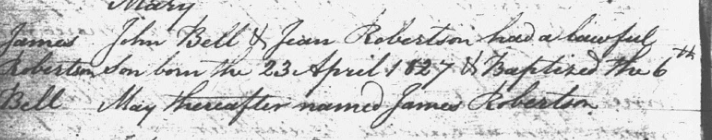 Mary
James John Bell & Jean Robertson had a lawful
Robertson Son born the 23 April 1827 & Baptized the 6th
Bell May thereafter named James Robertson